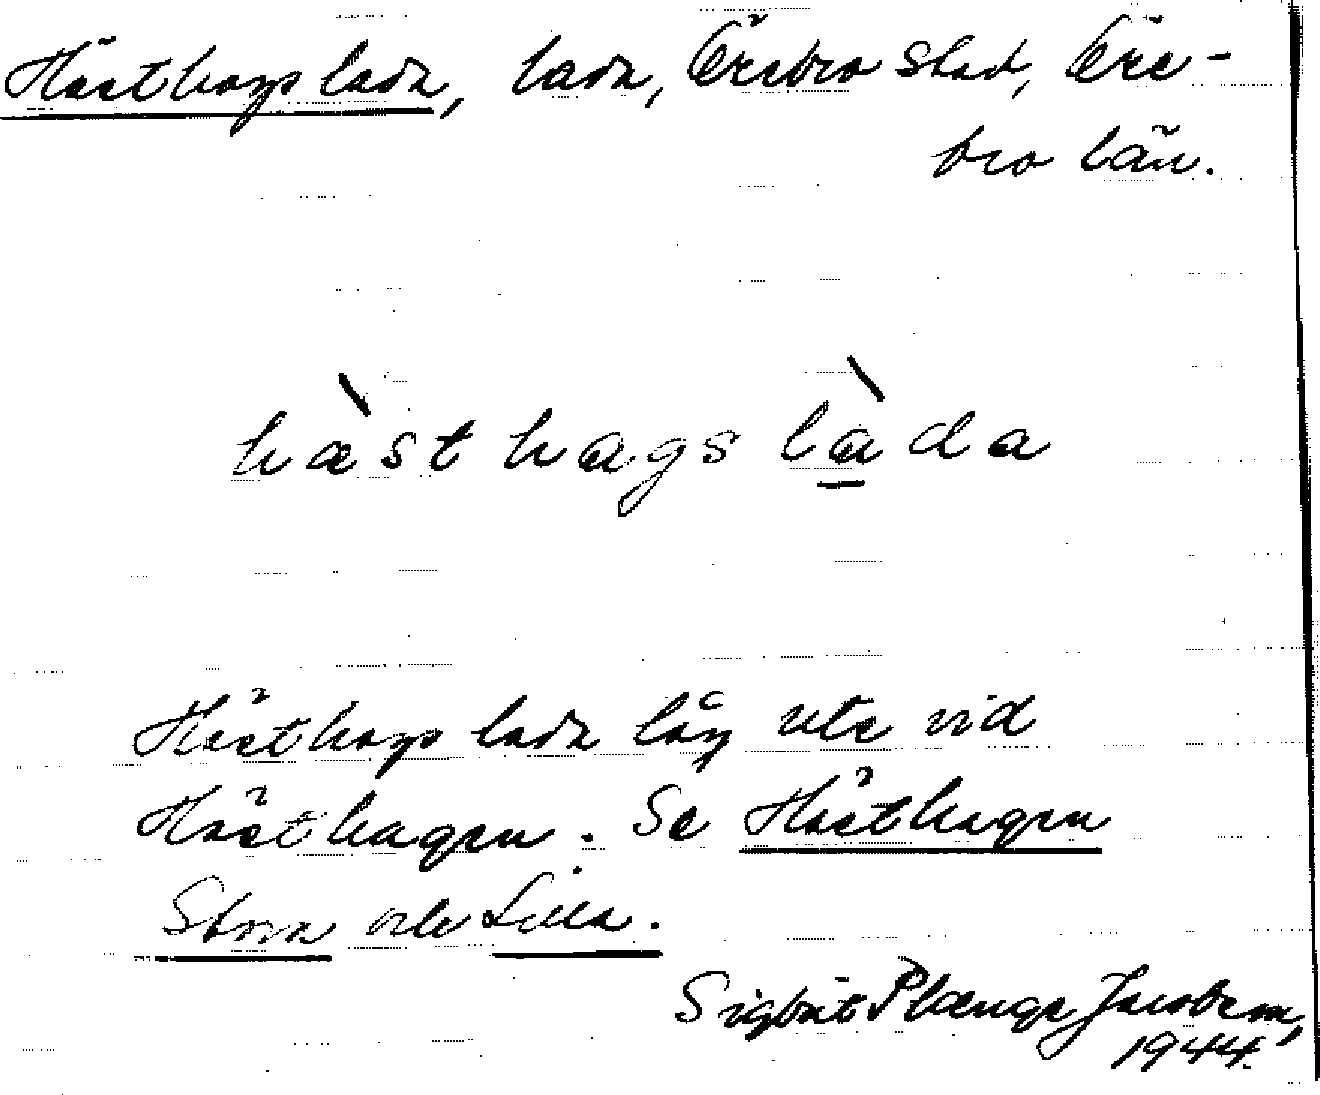 Hästhags lada, lada, Örebro stad, Öre-
bro län.
hæ̀sthagslàda
Hästhags lada låg ute vid
Hästhagen. Se Hästhagen
Stora och Lilla.
Sigbrit Plænge Jacobson,
1944.